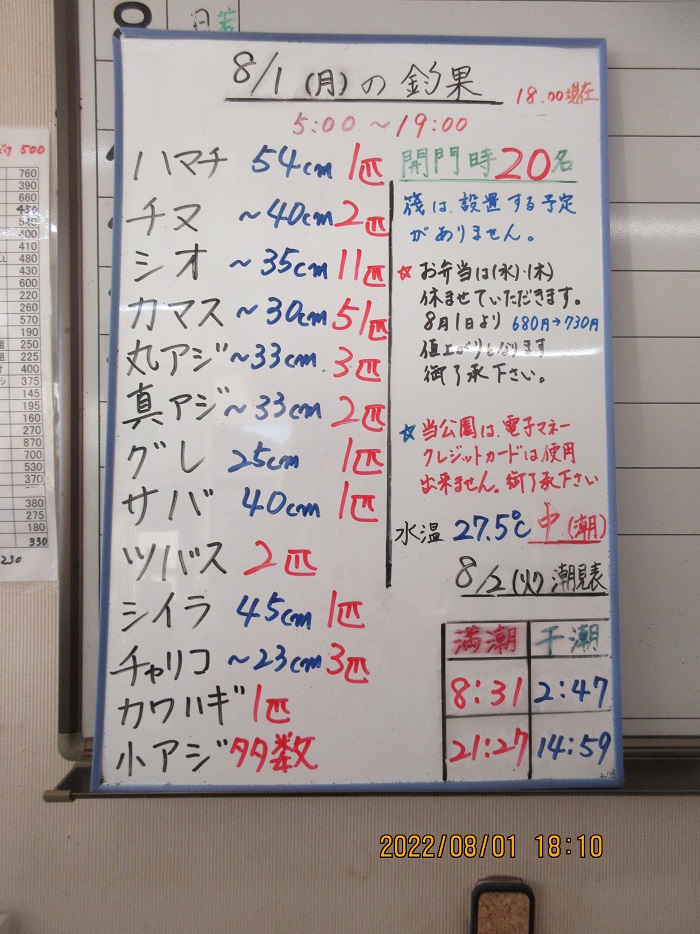 8/1(月)の釣果
18.00現在
5:00～19:00
ハマチ 54cm 1匹
チヌ ～40cm 2匹
シオ ～35cm 11匹
カマス ～30cm 51匹
丸アジ ～33cm 3匹
真アジ ～33cm 2匹
グレ 25cm 1匹
サバ 40cm 1匹
ツバス 2匹
シイラ 45cm 1匹
チャリコ ～23cm 3匹
カワハギ 1匹
小アジ 多数
開門時 20名
筏は、設置する予定
がありません。
☆お弁当は(水)・(木)
休ませていただきます。
8月1日より 680円→730円
値上がりしなります
御了承下さい。
☆当公園は、電子マネー
クレジットカードは使用
出来ません。御了承下さい
水温 27.5℃ 中(潮)
8/2(火)潮見表
満潮 干潮
8:31 2:47
21:27 14:59
500
760
390
660
450
540
400
410
480
430
600
220
260
570
190
225
250
400
375
145
195
160
270
870
700
530
370
380
275
180
330
230
2022/08/01 18:10